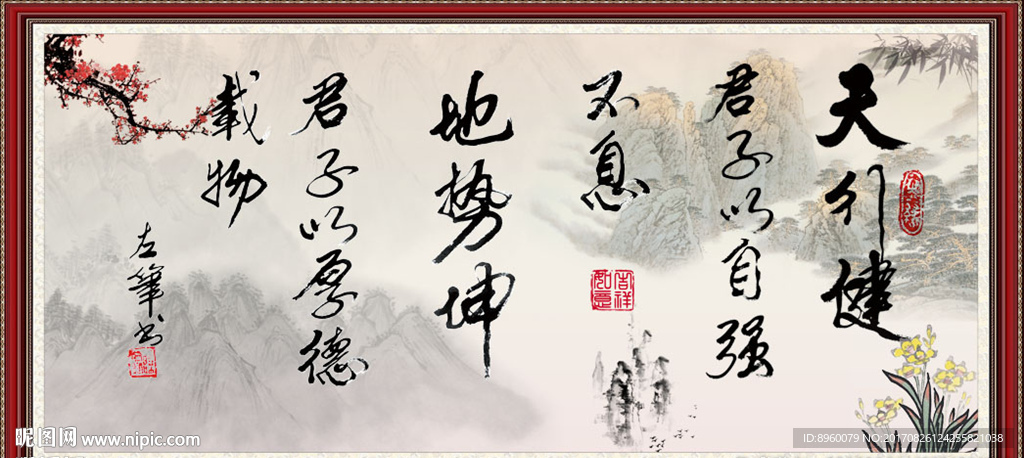 天行健
君子以自强
不息
地势坤
君子以厚德
载物
左笔书
吉祥
如意
昵图网 www.nipic.com
ID:8960079 NO:20170826124255821038